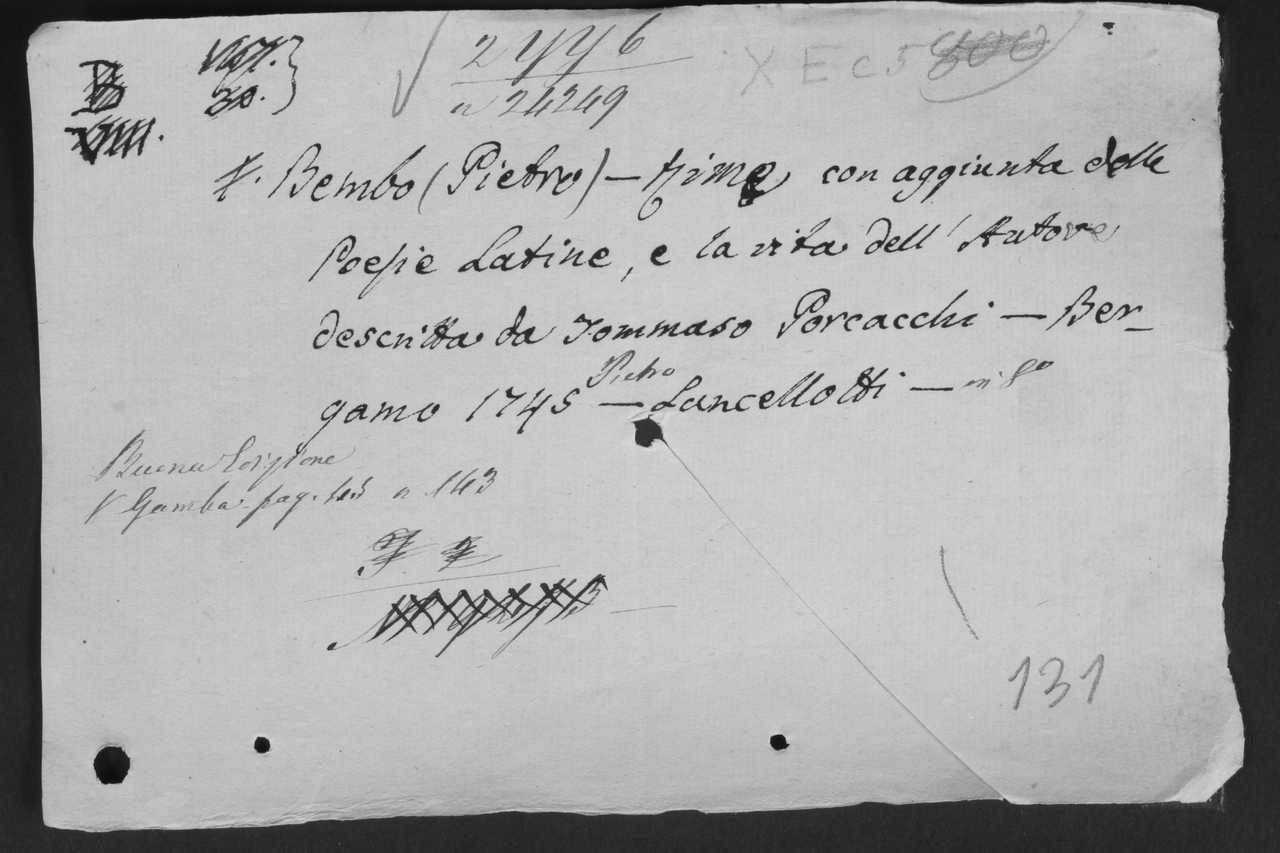 2 yy 6
n 24249
X E C 5
Bembo (Pietro) — Rime con aggiunta delle
Poesie Latine, e la vita dell'Autore
descritta da Tommaso Porcacchi — Ber-
gamo 1745 — Pietro Lancellotti — in 8º
Buona Edizione
V Gamba. pag. n 143
131